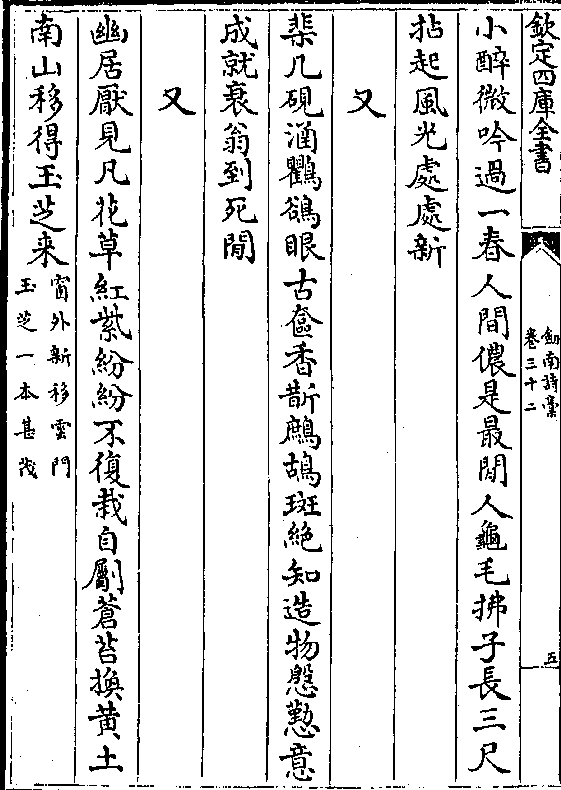 欽定四庫全書
劍南詩稾
卷三十二
五
小醉微吟過一春人間儂是最閒人龜毛拂子長三尺
拈起風光處處新
又
棐几硯涵鸜鵒眼古奩香斮鷓鴣斑絶知造物慇懃意
成就衰翁到死閒
又
幽居厭見凡花草紅紫紛紛不復栽自斸蒼苔換黄土
南山移得玉芝来
窗外新移雲門
玉芝一本甚茂